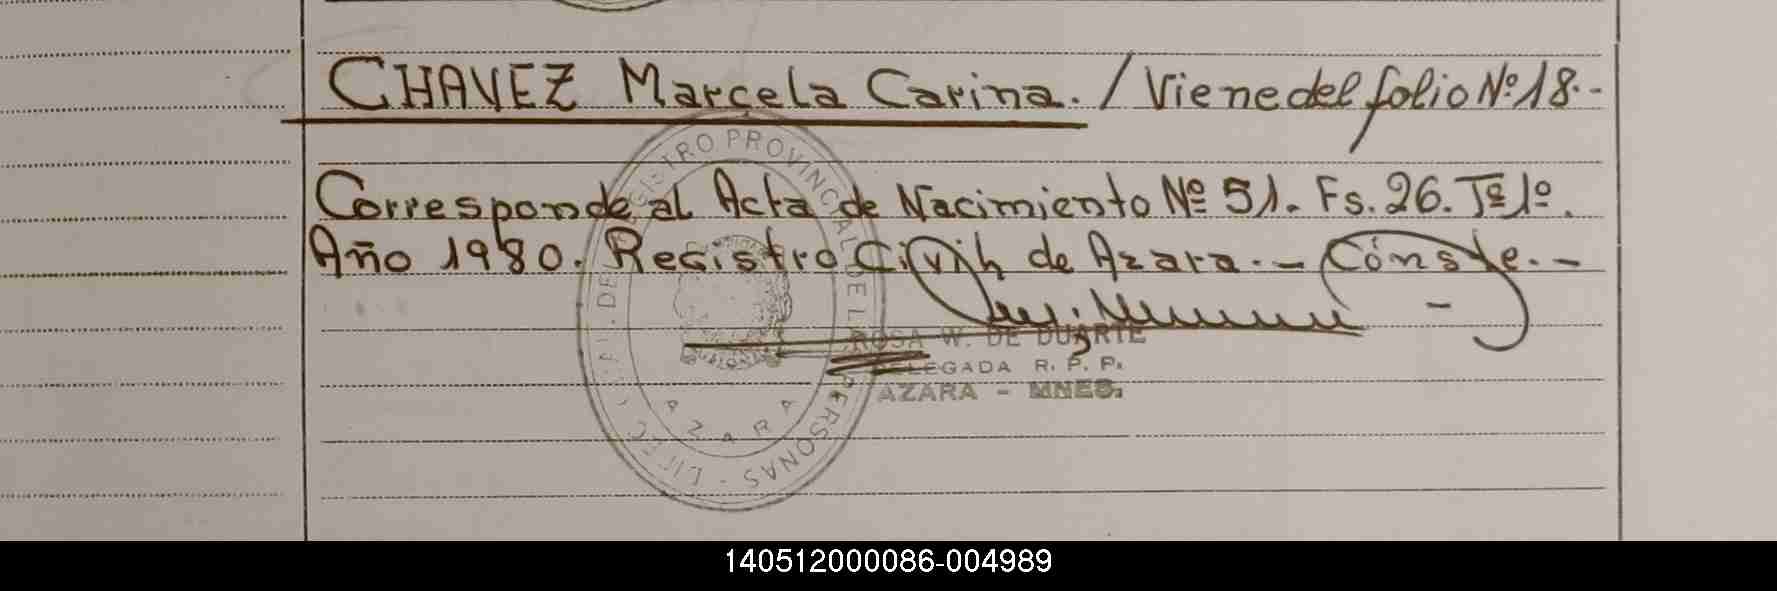 CHAVEZ Marcela Carina. / Viene del folio Nº 18.-
Corresponde al Acta de Nacimiento Nº 51. Fs. 26. Tº 1º.
Año 1980. Registro Civil de Azara.- Cónste.-
ROSA W. DE DUARTE
DELEGADA R. P. P.
AZARA - MNES.
REGISTRO PROVINCIAL DE LAS PERSONAS
AZARA
140512000086-004989